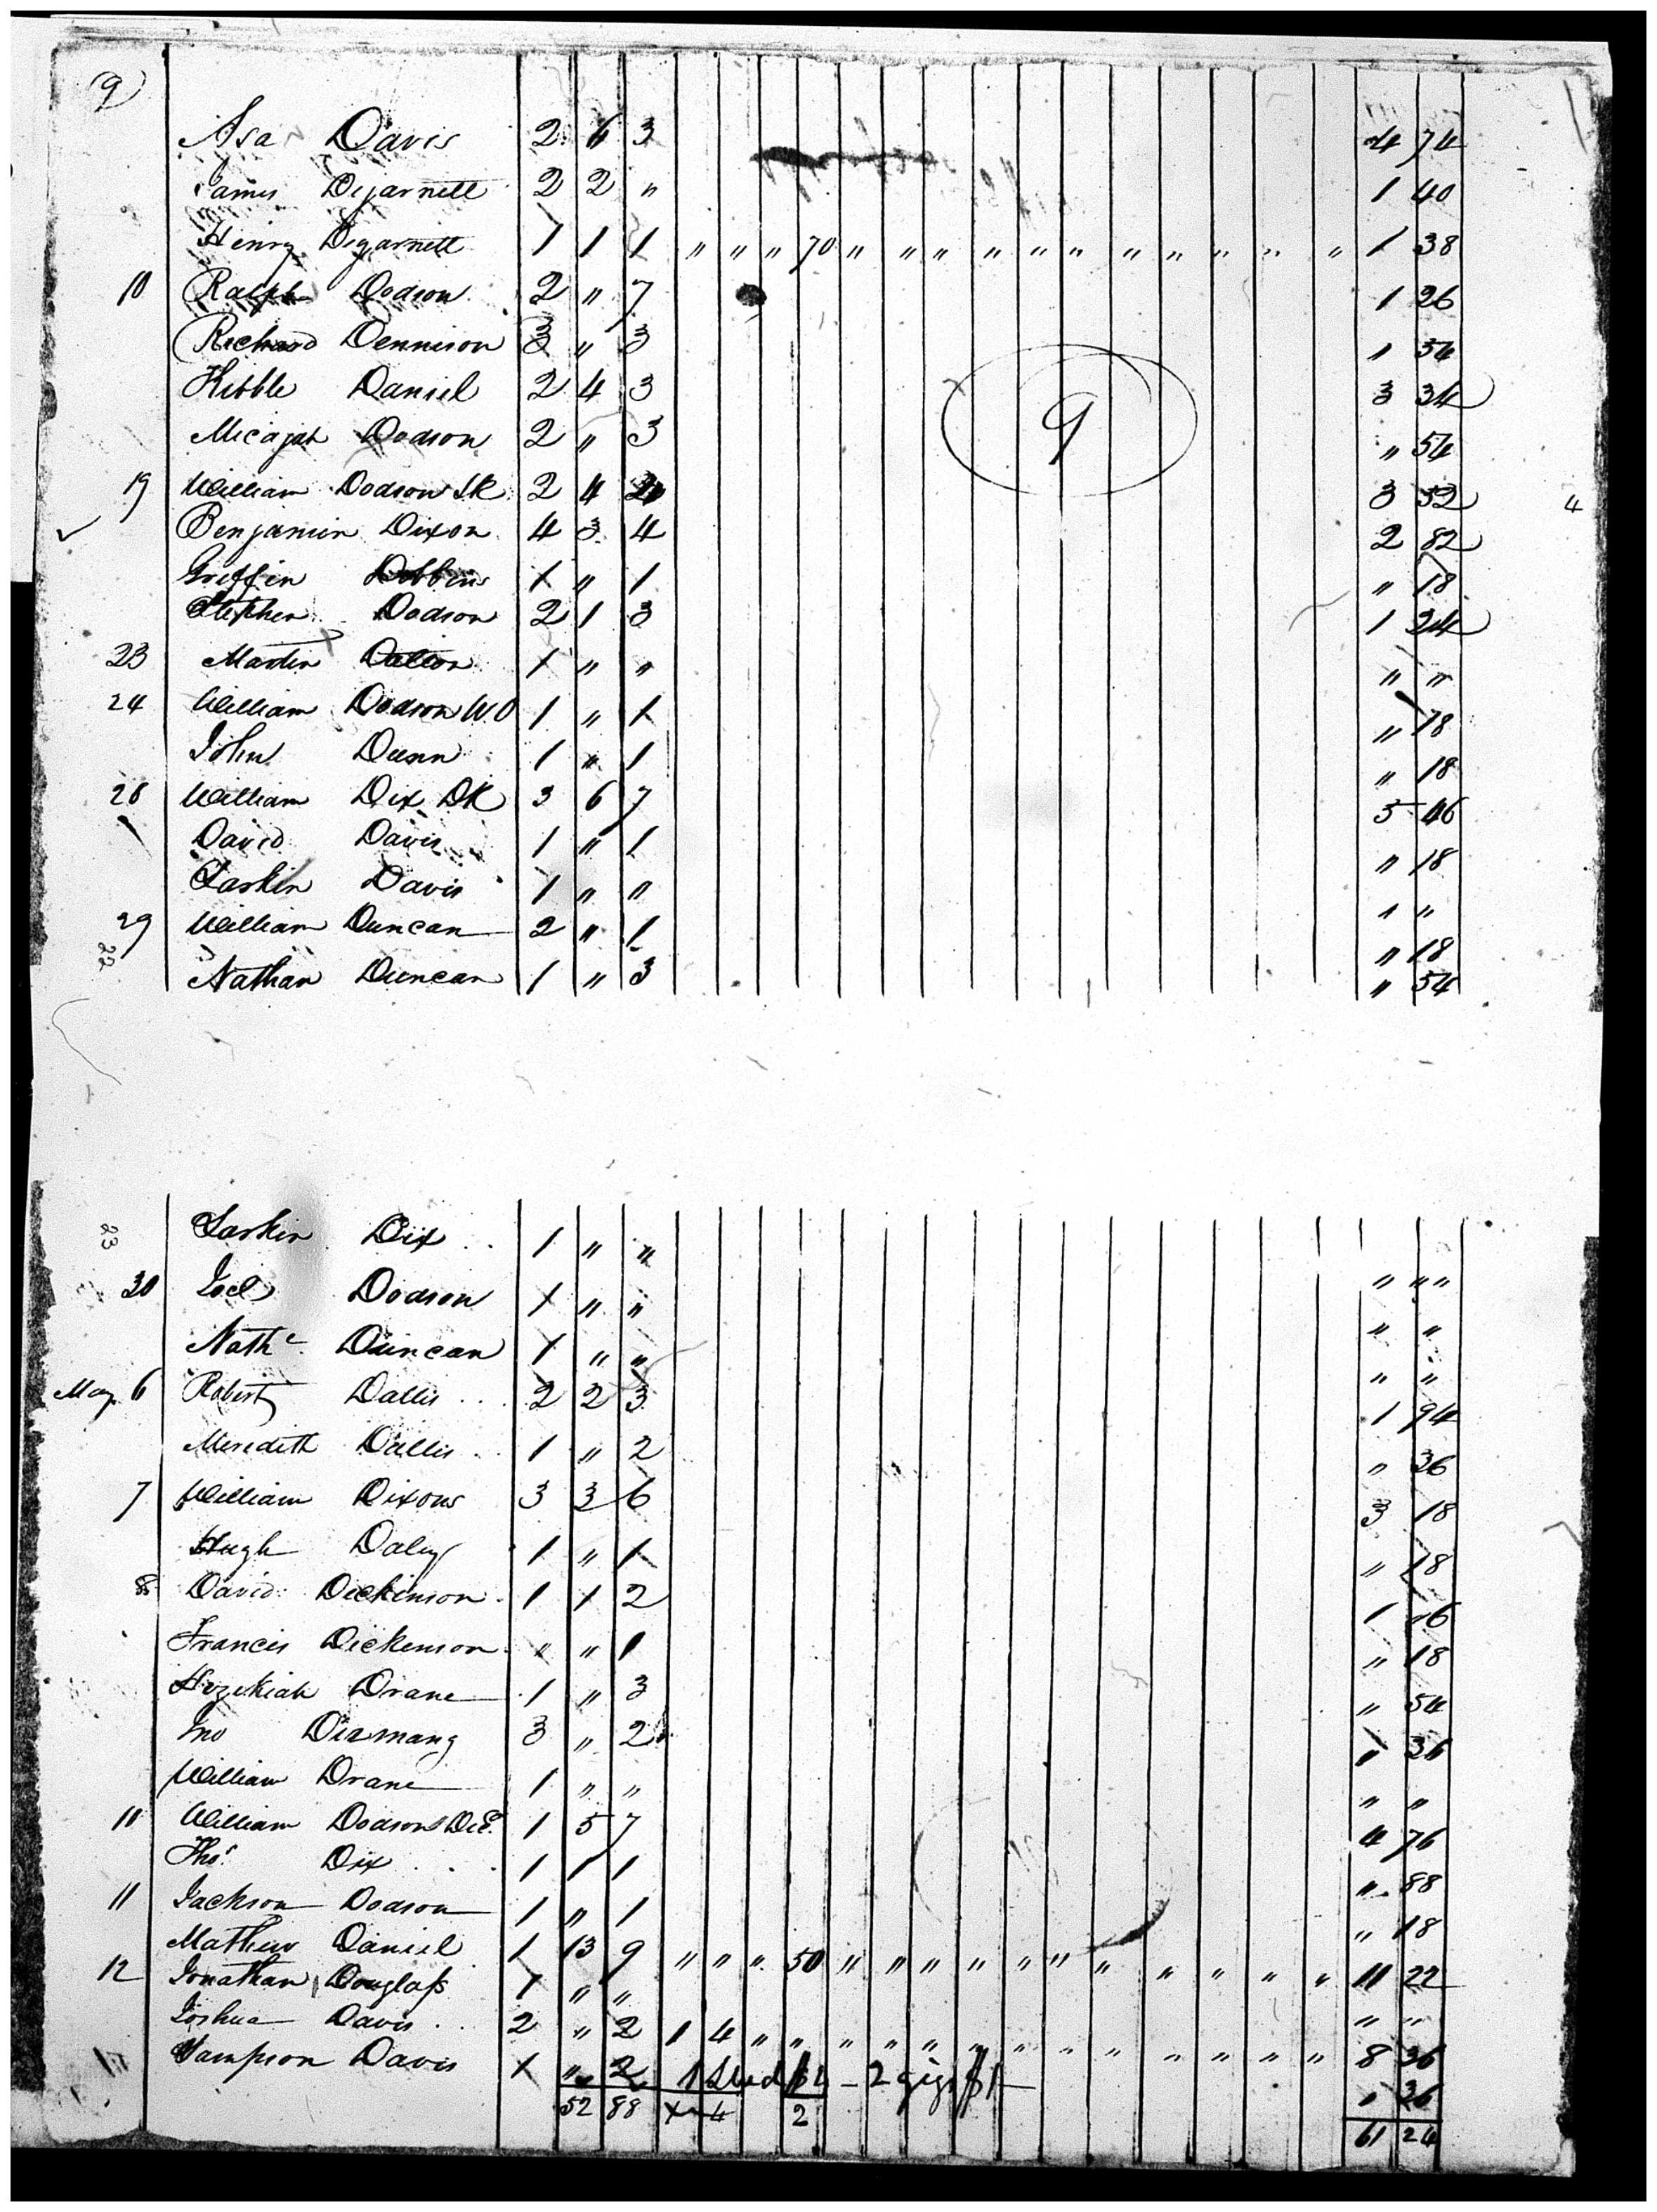 9
Asa Davis 2 6 3 4 74
James Dejarnett 2 2 " 1 40
Henry Dejarnett 1 1 1 " " " 70 " " " " " " " " " " " 1 38
10 Ralph Dodson 2 " 7 1 26
Richard Dennison 3 " 3 " 54
Kibble Daniel 2 4 3 3 34
9
Micajah Dodson 2 " 3 " 54
19 William Dodson 2 4 3 52 4
Benjamin Dixon 4 3 4 2 82
Griffin Dobbins 1 " 1 " 18
Stephen Dodson 2 1 3 1 24
23 Martin Dalton 1 " " " "
24 William Dodson W.O 1 " 1 " 18
John Dunn 1 " 1 " 18
28 William Dix DR 3 6 7 5 46
David Davis 1 " 1 " 18
Larkin Davis 1 " " " "
29 William Duncan 2 " 1 " 18
22
Nathan Duncan 1 " 3 " 54
23
Larkin Dix 1 " " " " "
30 Joel Dodson 1 " " " "
Nathl Duncan 1 " " " "
May 6 Robert Dallis 2 2 3 1 94
Meredith Dallis 1 " 2 " 36
7 William Dixons 3 3 6 3 18
Hugh Daley 1 " 1 " 18
8 David Dickinson 1 1 2 1 06
Francis Dickenson " " 1 " 18
Hezekiah Drane 1 " 3 " 54
Jno 3 " 2 " 36
William Drane 1 " " " "
10 William Dodson 1 5 7 4 76
Thos Dix 1 1 1 " 88
11 Jackson Dodson 1 " 1 " 18
Mathew Daniel 1 13 9 " " " 50 " " " " " " " " " " " 11 22
12 Jonathan Douglass 1 " " " "
Joshua Davis 2 " 2 1 4 " " " " " " " " " " " " " 8 36
Vampson Davis 1 " 2 1 Stud $2 - 2 gigs $1 " 36
52 88 1 4 2 61 24